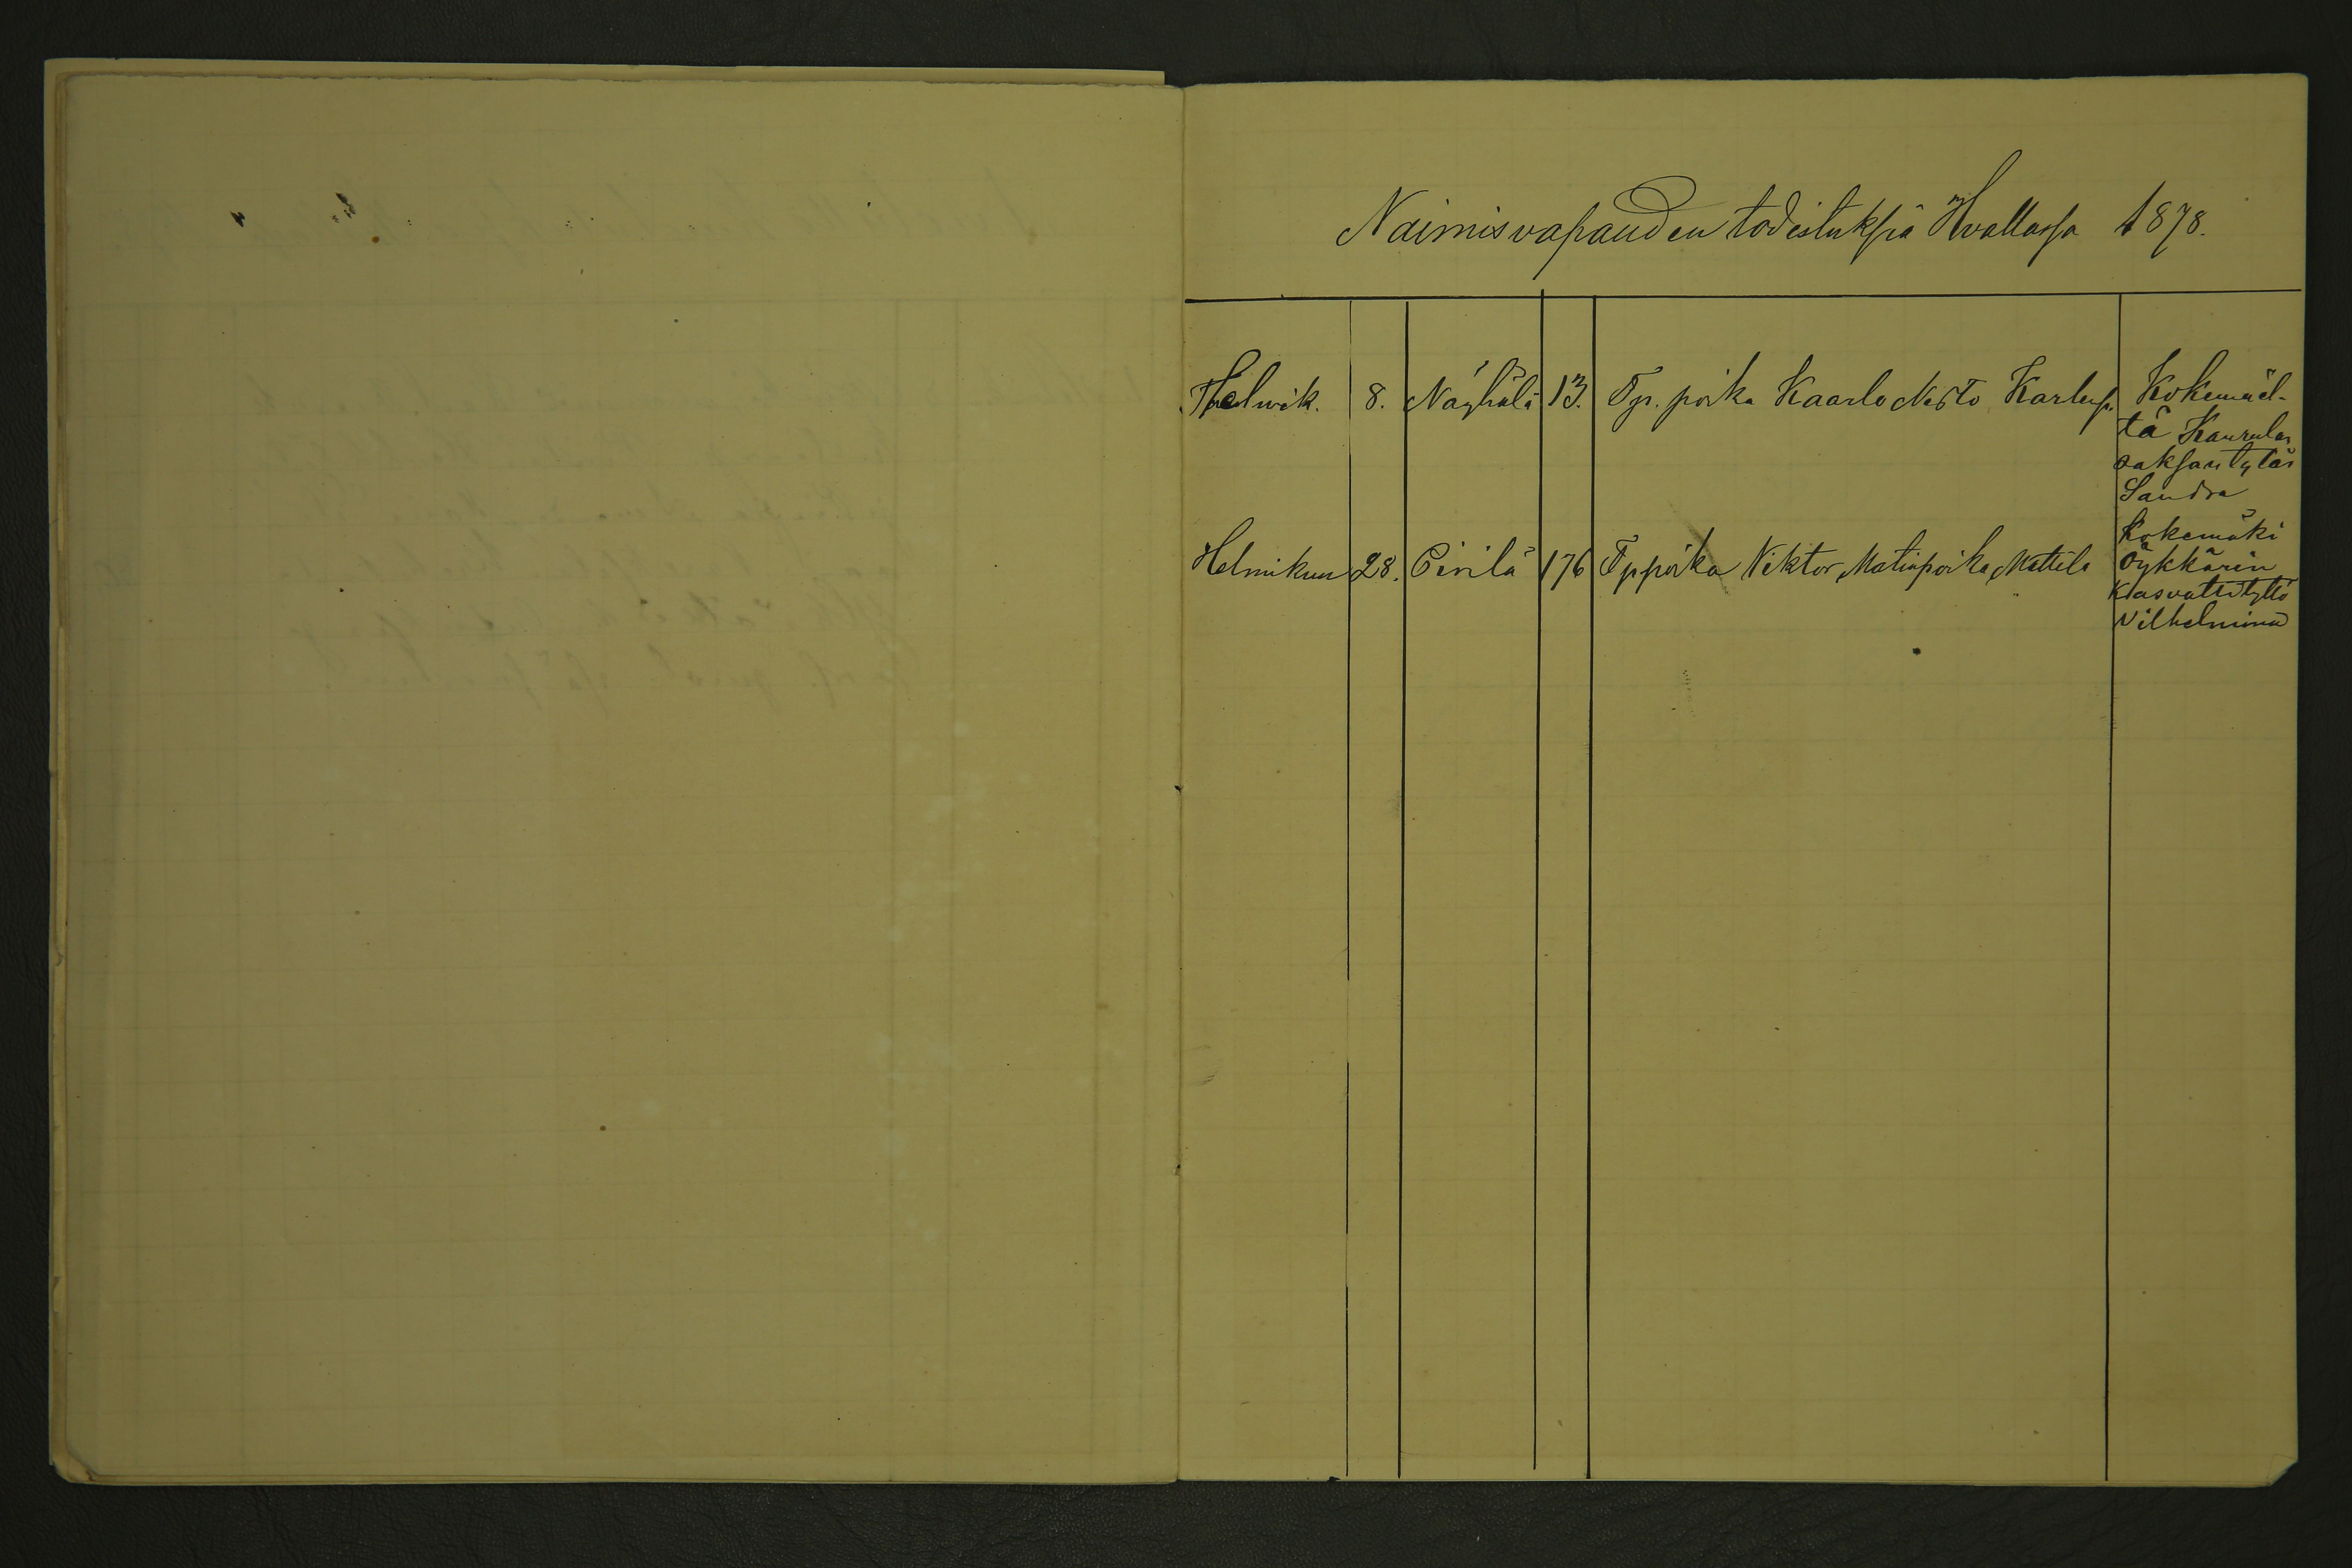 Naimisvapauden todistuksia 1878.
Helmik. 8. Näyhälä 13. Tp. poika Kaarlo Nesto Karlenp. Kokemäel-
tä Kaurulan
saksan tytär
Sandra
Helmikun 28. Pirilä 176 Tp poika Viktor Matinpoika Mattila Kokemäki
Öykkärin
Kasvattityttö
Vilhelmina